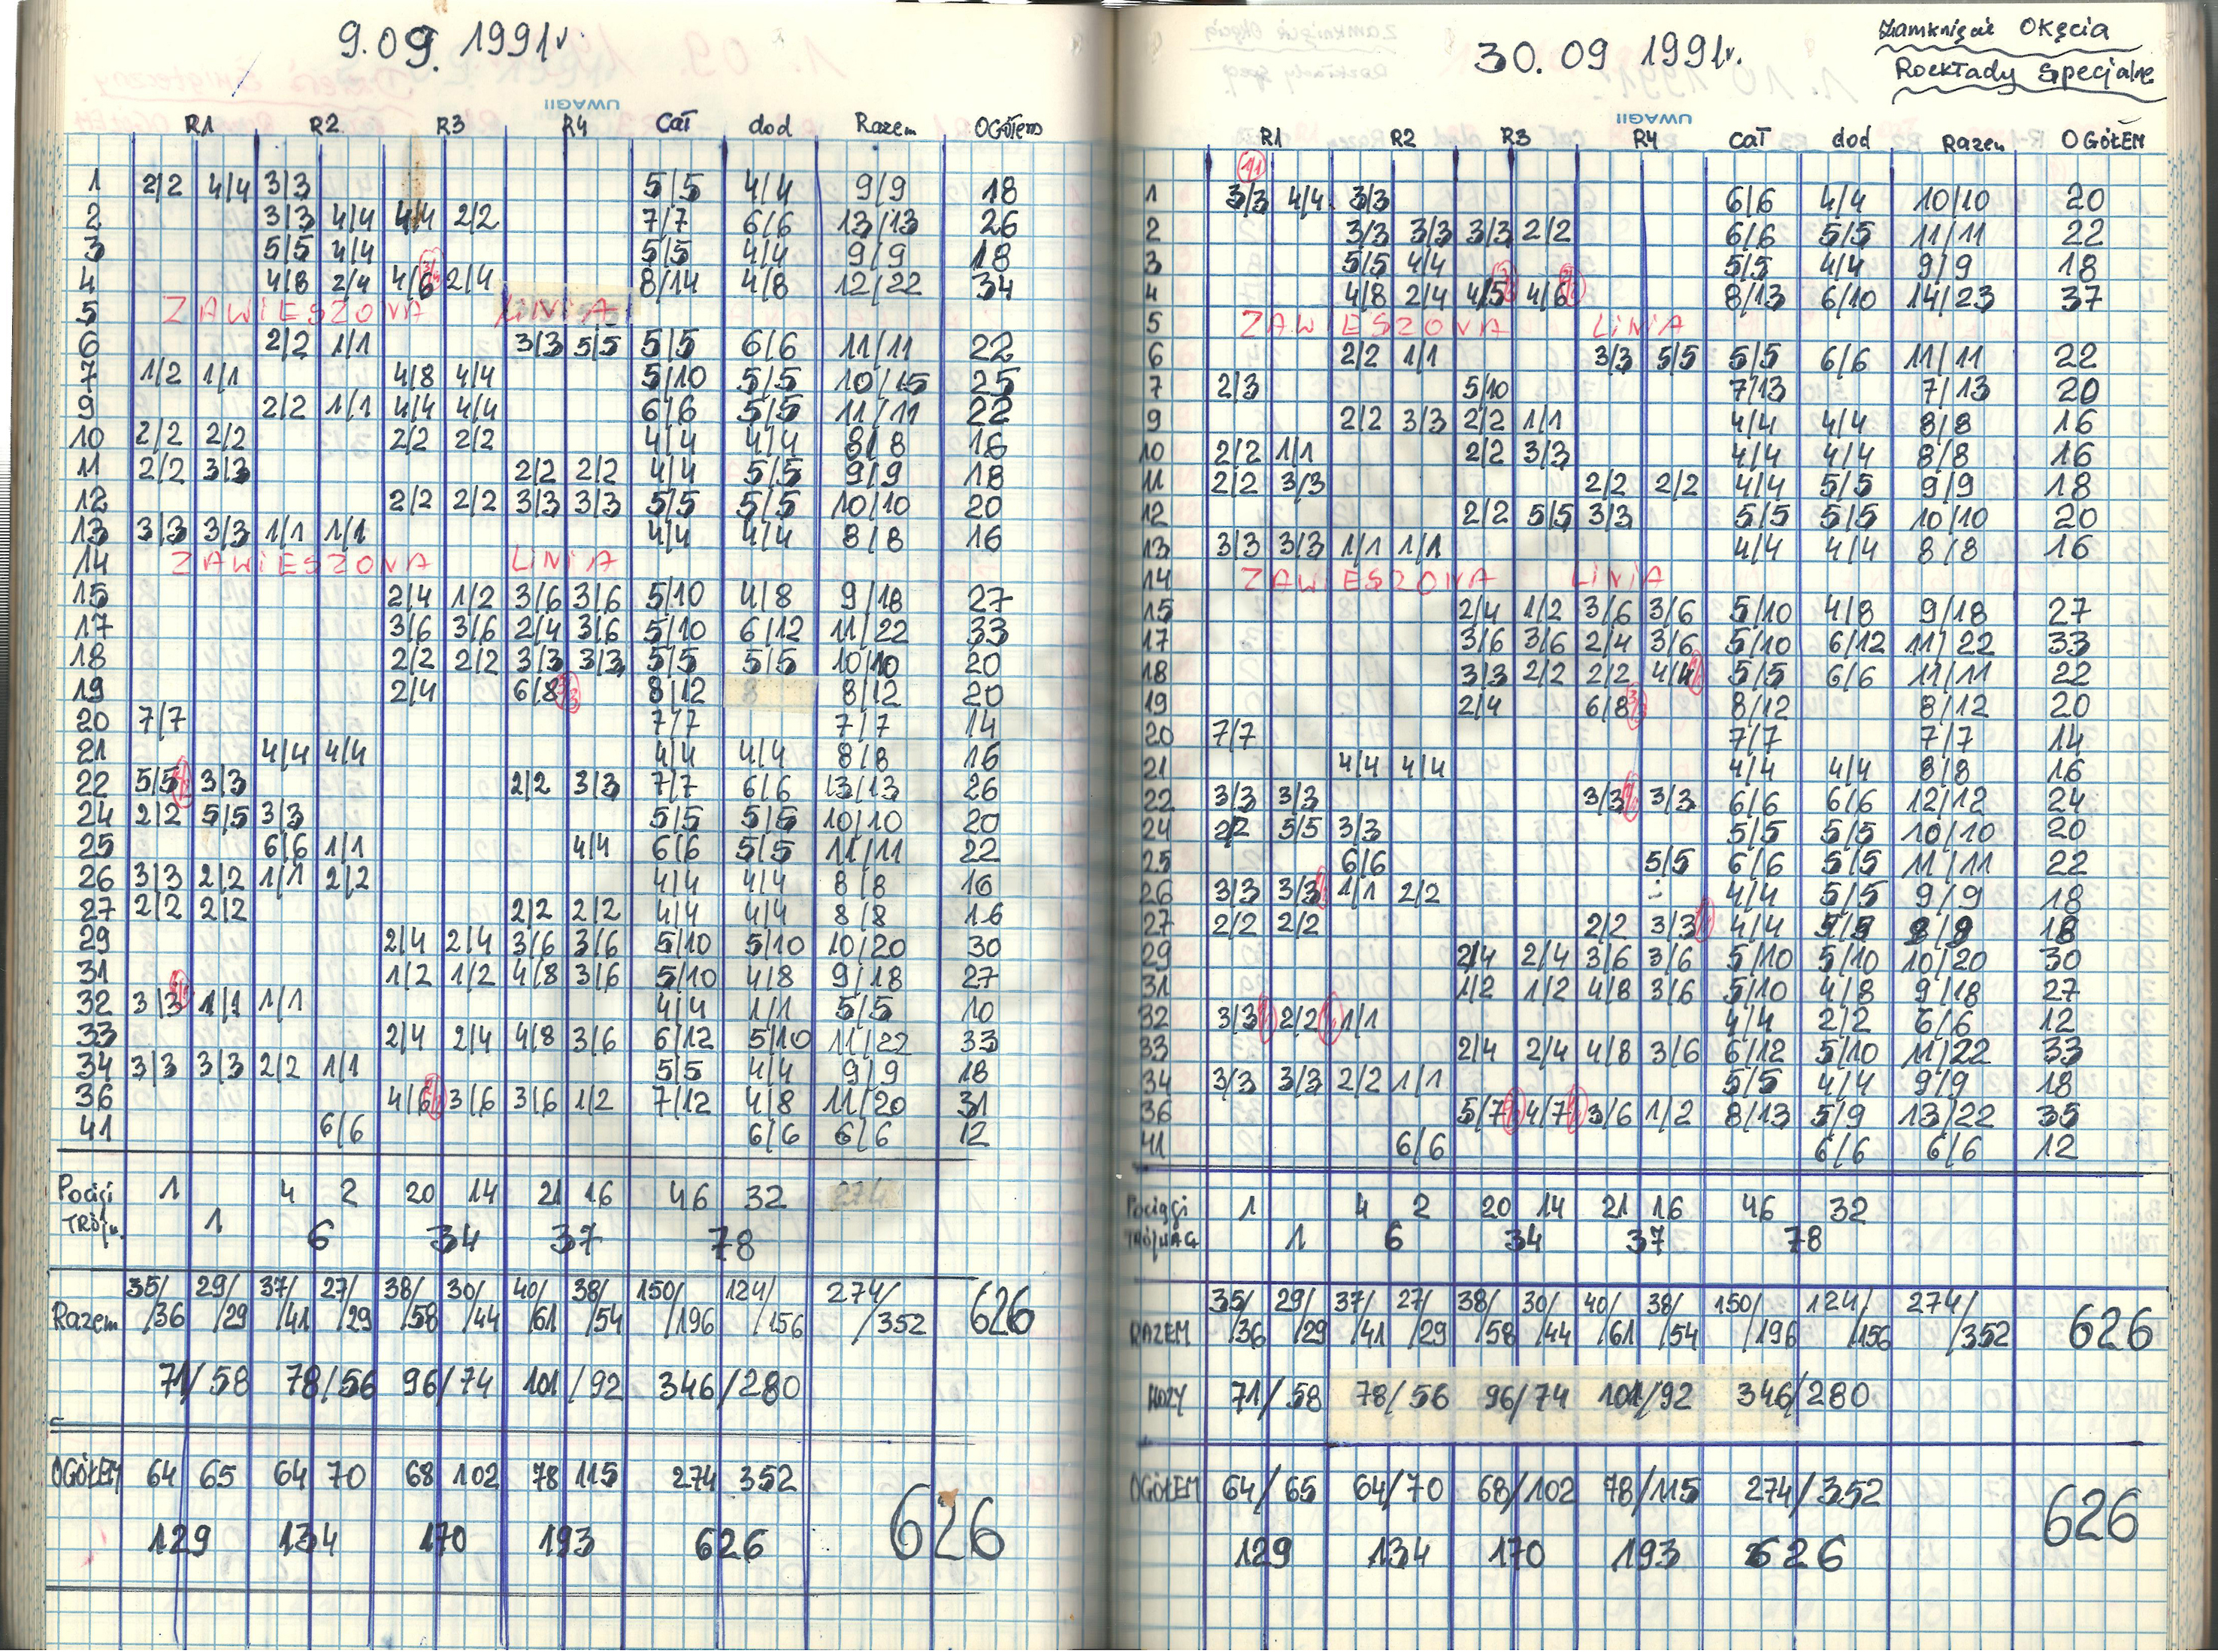 9.09. 1991r.
UWAGI!
R1 R2 R3 R4 Cał dod Razem OGÓŁem
1 2/2 4/4 3/3 5/5 4/4 9/9 18
2 3/3 4/4 4/4 2/2 7/7 6/6 13/13 26
3 5/5 4/4 5/5 4/4 9/9 18
4 4/8 2/4 4/6 2/4 8/14 4/8 12/22 34
5 ZAWIESZONA LINIA
6 2/2 1/1 3/3 5/5 5/5 6/6 11/11 22
7 1/2 1/1 4/8 4/4 5/10 5/5 10/15 25
9 2/2 1/1 4/4 4/4 6/6 5/5 11/11 22
10 2/2 2/2 2/2 2/2 4/4 4/4 8/8 16
11 2/2 3/3 2/2 2/2 4/4 5/5 9/9 18
12 2/2 2/2 3/3 3/3 5/5 5/5 10/10 20
13 3/3 3/3 1/1 1/1 4/4 4/4 8/8 16
14 ZAWIESZONA LINIA
15 2/4 1/2 3/6 3/6 5/10 4/8 9/18 27
17 3/6 3/6 2/4 3/6 5/10 6/12 11/22 33
18 2/2 2/2 3/3 3/3 5/5 5/5 10/10 20
19 2/4 6/8 8/12 8/12 20
20 7/7 7/7 7/7 14
21 4/4 4/4 4/4 4/4 8/8 16
22 5/5 3/3 2/2 3/3 7/7 6/6 13/13 26
24 2/2 5/5 3/3 5/5 5/5 10/10 20
25 6/6 1/1 4/4 6/6 5/5 11/11 22
26 3/3 2/2 1/1 2/2 4/4 4/4 8/8 16
27 2/2 2/2 2/2 2/2 4/4 4/4 8/8 16
29 2/4 2/4 3/6 3/6 5/10 5/10 10/20 30
31 1/2 1/2 4/8 3/6 5/10 4/8 9/18 27
32 3/3 1/1 1/1 4/4 1/1 5/5 10
33 2/4 2/4 4/8 3/6 6/12 5/10 11/22 33
34 3/3 3/3 2/2 1/1 5/5 4/4 9/9 18
36 4/6 3/6 3/6 1/2 7/12 4/8 11/20 31
41 6/6 6/6 6/6 12
Pociągi 1 4 2 20 14 21 16 46 32
TRÓJW. 1 6 34 37 78
35/ 29/ 37/ 27/ 38/ 30/ 40/ 38/ 150/ 124/ 274/ 626
Razem /36 /29 /41 /29 /58 /44 /61 /54 /196 /156 /352
71/58 78/56 96/74 101/92 346/280
OGÓŁEM 64 65 64 70 68 102 78 115 274 352
129 134 170 193 626 626
30.09 1991r.
Zamknięcie Okęcia
Rozkłady Specjalne
UWAGI!
R1 R2 R3 R4 Cał dod Razem OGÓŁEM
1/1
1 3/3 4/4 3/3 6/6 4/4 10/10 20
2 3/3 3/3 3/3 2/2 6/6 5/5 11/11 22
3 5/5 4/4 5/5 4/4 9/9 18
4 4/8 2/4 4/5 4/6 8/13 6/10 14/23 37
5 ZAWIESZONA LINIA
6 2/2 1/1 3/3 5/5 5/5 6/6 11/11 22
7 2/3 5/10 7/13 7/13 20
9 2/2 3/3 2/2 1/1 4/4 4/4 8/8 16
10 2/2 1/1 2/2 3/3 4/4 4/4 8/8 16
11 2/2 3/3 2/2 2/2 4/4 5/5 9/9 18
12 2/2 5/5 3/3 5/5 5/5 10/10 20
13 3/3 3/3 1/1 1/1 4/4 4/4 8/8 16
14 ZAWIESZONA LINIA
15 2/4 1/2 3/6 3/6 5/10 4/8 9/18 27
17 3/6 3/6 2/4 3/6 5/10 6/12 11/22 33
18 3/3 2/2 2/2 4/4 5/5 6/6 11/11 22
19 2/4 6/8 8/12 8/12 20
20 7/7 7/7 7/7 14
21 4/4 4/4 4/4 4/4 8/8 16
22 3/3 3/3 3/3 3/3 6/6 6/6 12/12 24
24 2/2 5/5 3/3 5/5 5/5 10/10 20
25 6/6 5/5 6/6 5/5 11/11 22
26 3/3 3/3 1/1 2/2 4/4 5/5 9/9 18
27 2/2 2/2 2/2 3/3 4/4 5/5 9/9 18
29 2/4 2/4 3/6 3/6 5/10 5/10 10/20 30
31 1/2 1/2 4/8 3/6 5/10 4/8 9/18 27
32 3/3 2/2 1/1 4/4 2/2 6/6 12
33 2/4 2/4 4/8 3/6 6/12 5/10 11/22 33
34 3/3 3/3 2/2 1/1 5/5 4/4 9/9 18
36 5/7 4/7 3/6 1/2 8/13 5/9 13/22 35
41 6/6 6/6 6/6 12
Pociągi 1 4 2 20 14 21 16 46 32
1 6 34 37 78
35/ 29/ 37/ 27/ 38/ 30/ 40/ 38/ 150/ 124/ 274/ 626
RAZEM /36 /29 /41 /29 /58 /44 /61 /54 /196 /156 /352
WOZY 71/58 78/56 96/74 101/92 346/280
OGÓŁEM 64/65 64/70 68/102 78/115 274/352
129 134 170 193 626 626